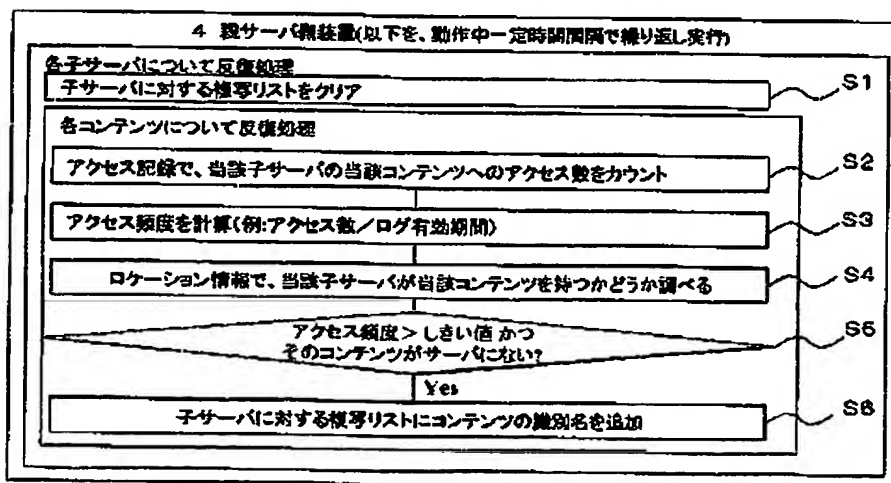 4 親サーバ側装置(以下を、動作中一定時間間隔で繰り返し実行)
各子サーバについて反復処理
子サーバに対する複写リストをクリア
S1
各コンテンツについて反復処理
アクセス記録で、当該子サーバの当該コンテンツへのアクセス数をカウント
S2
アクセス頻度を計算(例:アクセス数/ログ有効期間)
S3
ロケーション情報で、当該子サーバが当該コンテンツを持つかどうか調べる
S4
アクセス頻度>しきい値 かつ
そのコンテンツがサーバにない?
S5
Yes
子サーバに対する複写リストにコンテンツの識別名を追加
S6